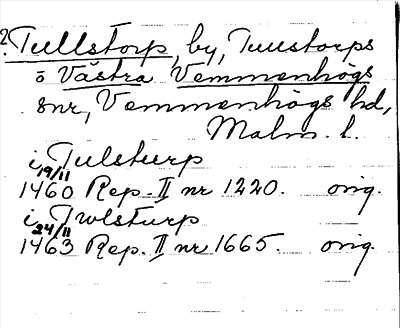 2. Tullstorp, by, Tullstorps
o Västra Vemmenhögs
snr, Vemmenhögs hd,
Malm. l.
i Tulsturp
19/11
1460 Rep. II nr 1220. orig.
i Twlsturp
24/11
1463 Rep. II nr 1665. orig.